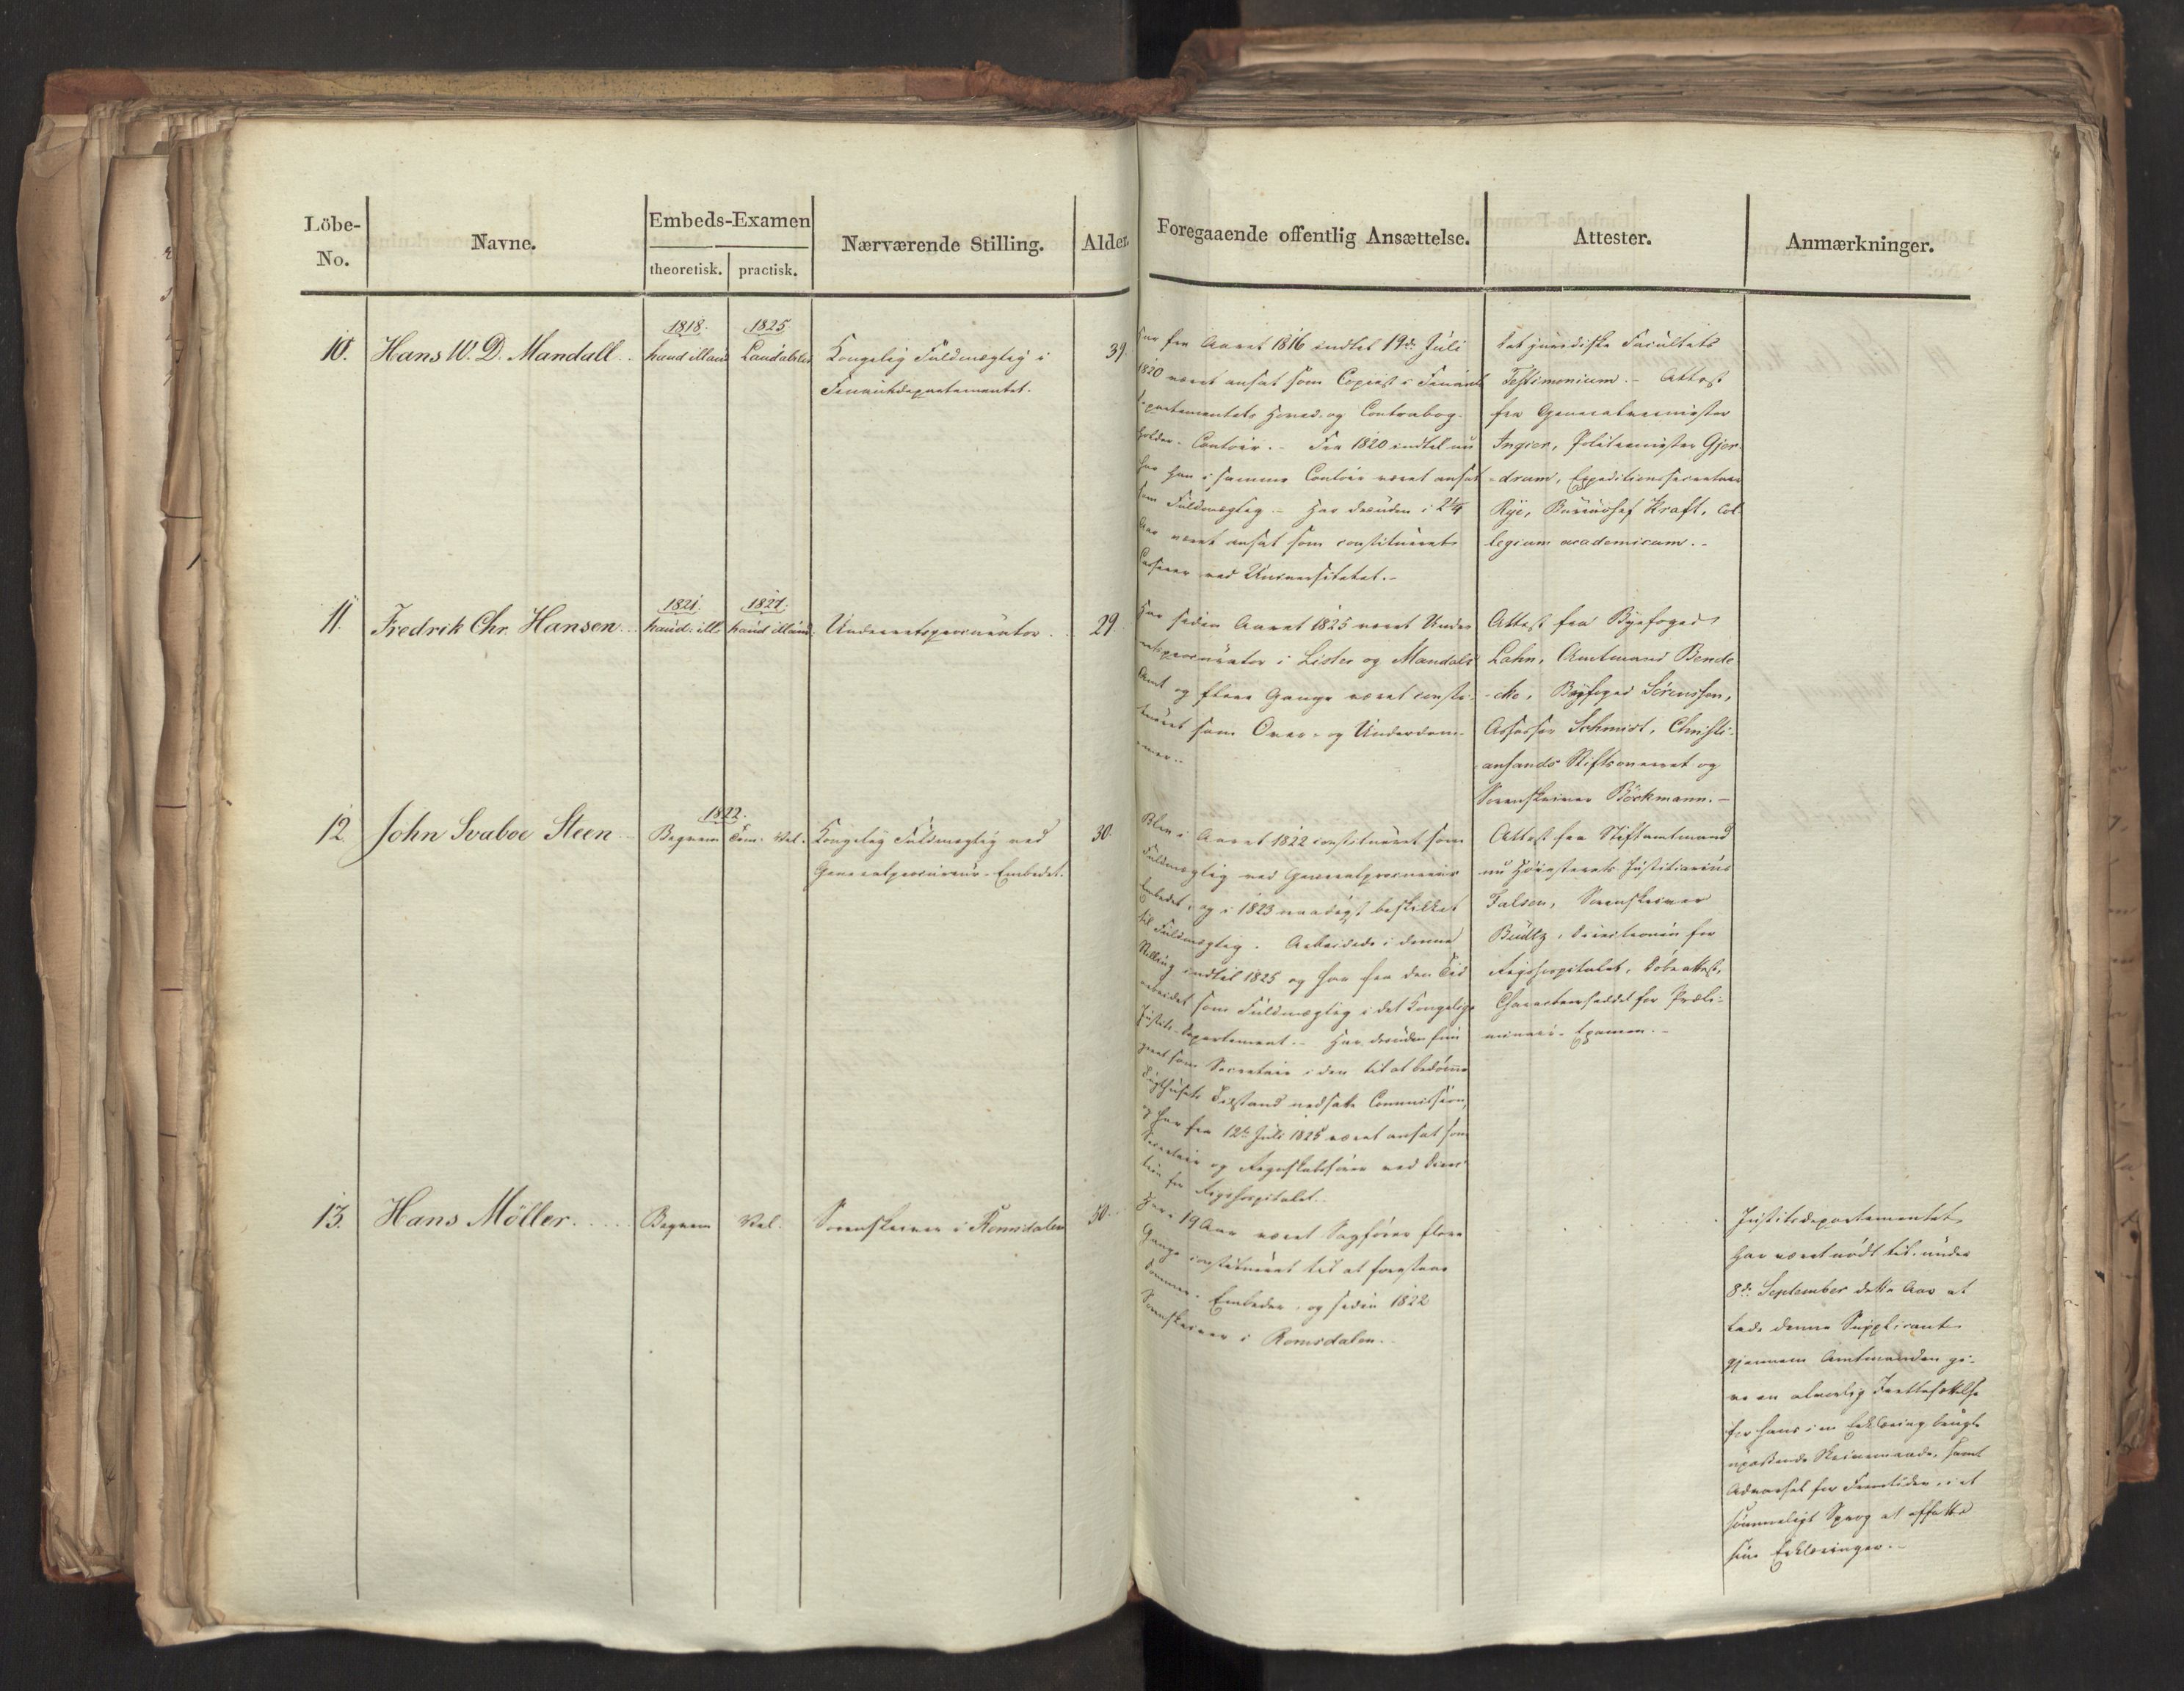 Löbe-No.
Navne.
Embeds-Examen
theoretisk.
practisk.
Nærværende Stilling.
Alder.
Foregaaende offentlig Ansættelse.
Attester.
Anmærkninger.
10.
Hans W. D. Mandall
1818.
haud illaud
1825.
Laudabilis
Kongelig Fuldmægtig i
Finantsdepartementet.
39.
Har fra Aaret 1816 indtil 19de Juli
1820 været ansat som Copist i Finants
departementets Hoved- og Contrabog-
holder-Contoir. - Fra 1820 indtil nu
har han i samme Contoir været ansat
som Fuldmægtig. - Har desuden i 2¼
Aar været ansat som constitueret
Casserer ved Universitetet. -
Det juridiske Facultets
Testimonium. - Attest
fra Generalveimester
Ingier, Politiemester Gjer-
-drum, Expeditionssecretair
Rye, Bureauchef Kraft, Col-
legium academicum. -
11.
Fredrik Chr. Hansen
1821.
haud. ill.
1827.
haud illaud.
Underretsprocurator.
29.
Har siden Aaret 1825 været Under-
retsprocurator i Lister og Mandals
Amt og flere Gange været consti-
tueret som Over- og Underdom-
mer. -
Attest fra Byefoged
Lahn, Amtmand Bende-
-cke, Byfoged Sörenssen,
Assessor Schmidt, Christi-
ansands Stiftsoverret og
Sorenskriver Böckmann. -
12.
John Svaboe Steen
1822.
Beqvem
Tem. Vel.
Kongelig Fuldmægtig ved
Generalprocureur-Embedet.
30.
Blev i Aaret 1822 constitueret som
Fuldmægtig ved Generalprocureur
Embedet, og i 1823 naadigst beskikket
til Fuldmægtig. Arbeidede i denne
Stilling indtil 1825 og har fra den Tid
arbeidet som Fuldmægtig i det Kongelige
Justits-Departement. - Har desuden fun-
geret som Secretair i den til at bedömme
Tugthusets Tilstand nedsatte Commission,
og har fra 12te Juli 1825 været ansat som
Secretair og Regnskabsförer ved Direc-
tion for Rigshospitalet.
Attest fra Stiftamtmand
nu Höiesterets Justitiarius
Falsen, Sorenskriver
Budtz, Directionen for
Rigshospitalet, Döbeattest,
Characteerseddel for Præli-
minair-Examen. -
13.
Hans Möller.
Beqvem
Vel.
Sorenskriver i Romsdalen
50.
Har i 19 Aar været Sagförer flere
Gange constitueret til at forestaae
Dommer-Embeder, og siden 1822
Sorenskriver i Romsdalen.
Justitsdepartementet
har været nödt til under
8de September dette Aar at
lade denne Supplicant
gjennem Amtmanden gi-
ve en alvorlig Irettesættelse
for hans i en Erklæring brugte
upassende Skrivemaade, samt
Advarsel for Fremtiden, i et
sömmeligt Sprog at affatte
sine Erklæringer. -